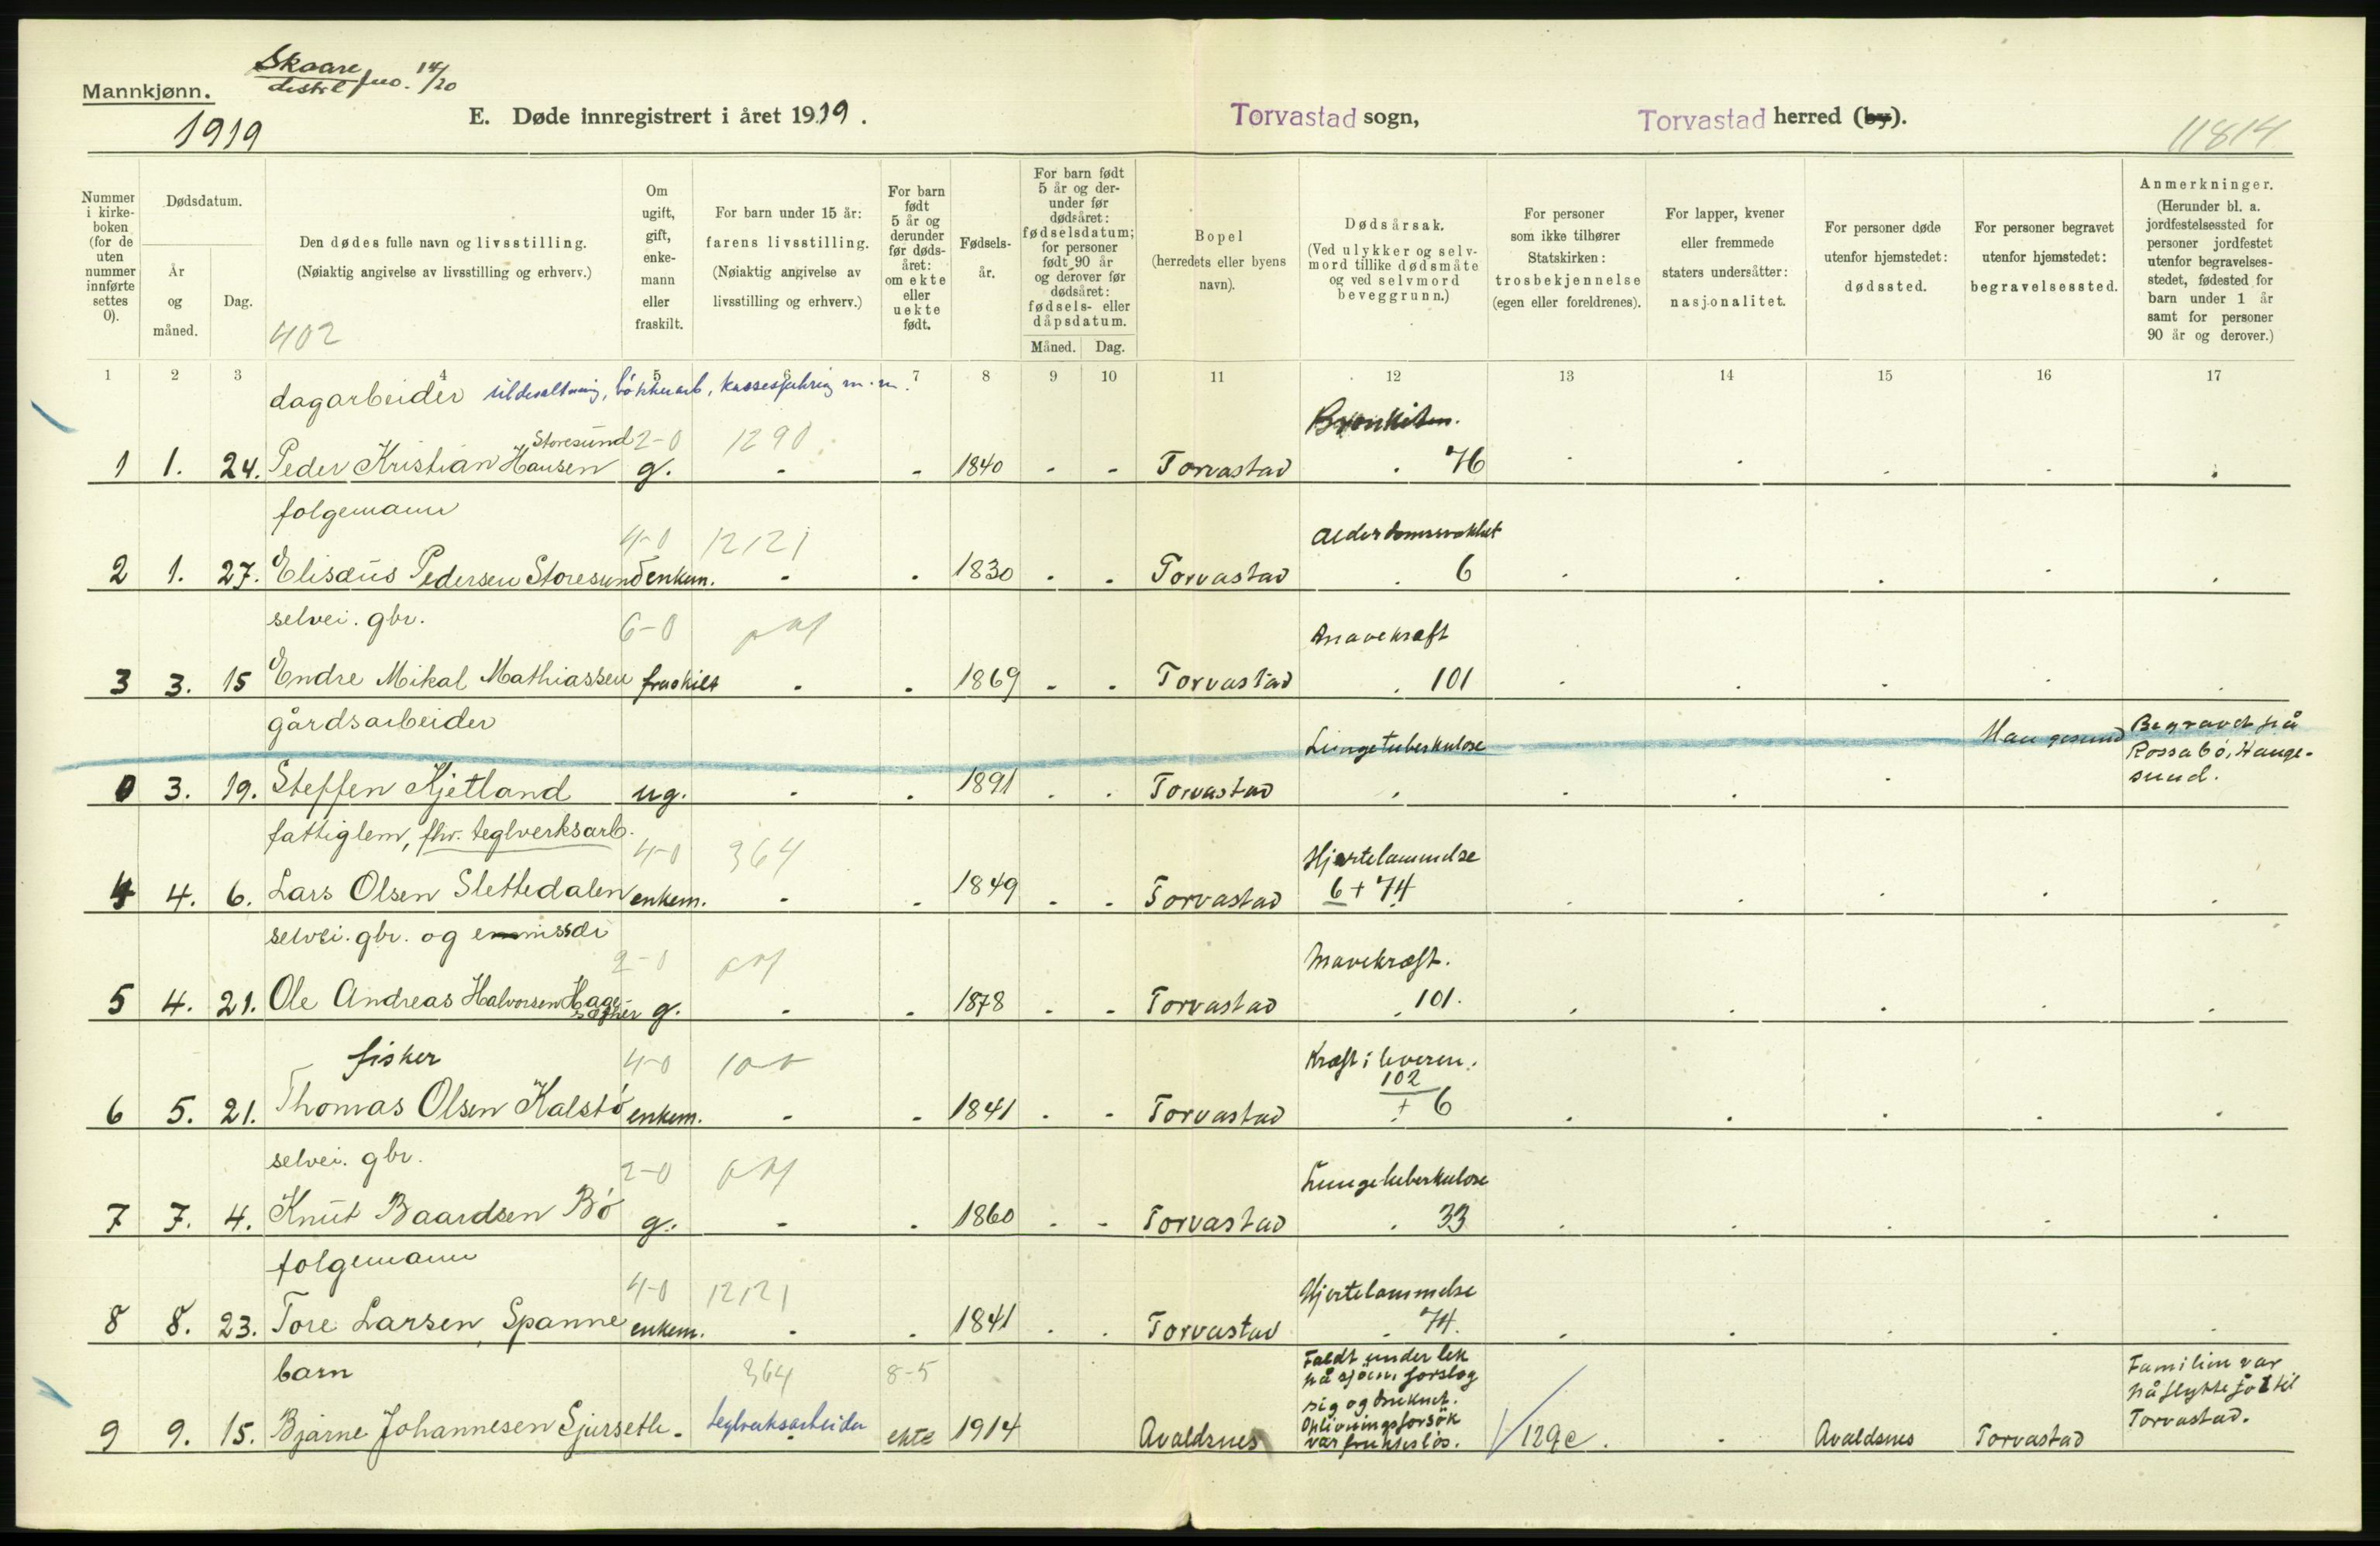 Mannkjønn.
Skaare
distr
14/20
1919
E. Døde innregistrert i året 1919.
Torvastad sogn,
Torvastad herred (by).
11814
Nummer i kirke-boken (for de uten nummer innførte settes 0).
Dødsdatum.
År og måned.
Dag.
Den dødes fulle navn og livsstilling.
(Nøiaktig angivelse av livsstilling og erhverv.)
402
Om ugift, gift, enke-mann eller fraskilt.
For barn under 15 år: farens livsstilling.
(Nøiaktig angivelse av livsstilling og erhverv.)
For barn født 5 år og derunder før døds-året: om ekte eller uekte født.
Fødsels-år.
For barn født 5 år og der-under før dødsåret: fødselsdatum; for personer født 90 år og derover før dødsåret: fødsels- eller dåpsdatum.
Måned. Dag.
Bopel
(herredets eller byens navn).
Dødsårsak.
(Ved ulykker og selv-mord tillike dødsmåte og ved selvmord beveggrunn.)
For personer som ikke tilhører Statskirken: trosbekjennelse (egen eller foreldrenes).
For lapper, kvener eller fremmede staters undersåtter: nasjonalitet.
For personer døde utenfor hjemstedet: dødssted.
For personer begravet utenfor hjemstedet: begravelsessted.
Anmerkninger.
(Herunder bl. a. jordfestelsessted for personer jordfestet utenfor begravelses-stedet, fødested for barn under 1 år samt for personer 90 år og derover.)
1 2 3 4 5 6 7 8 9 10 11 12 13 14 15 16 17
dagarbeider sildesaltning, bøkkerarb, m. m.
Bronkiten.
Storesund 2-0 1290
1 1. 24. Peder Kristian Hansen g. - - 1840 - - Torvastad . 76
folgemann
4-0 1212 1 Alderdomssvakhet
2 1. 27. Elisæus Pedersen Storesund enkem. - . 1830 . . Torvastad . 6
selvei. gbr.
6-0 Mavekræft
3 3. 15 Endre Mikal Mathiassen fraskilt . . 1869 - . Torvastad . 101
gårdsarbeider
Lungetuberkulose Haugesund Begravet på Rossabø, Hauge-sund.
0 3. 19. Steffen Kjetland ug. . . 1891 . . Torvastad
fattiglem, fhv. teglverksarb.
4-0 364 Hjertelammelse
4 4. 6. Lars Olsen Slettedalen enkem. - . 1849 . . Torvastad 6 + 74
selvei. gbr. og emissær
2-0 Mavekræft.
5 4. 21. Ole Andreas Halvorsen Hage-sæther g. - . 1878 - - Torvastad . 101.
fisker
4-0 Kræft i leveren.
102
6 5. 21. Thomas Olsen Kalstø enkem. - - 1841 . - Torvastad + 6
selvei. gbr.
2-0 Lungetuberkulose
7 7. 4. Knut Baardsen Bø g. - . 1860 . - Torvastad . 33
folgemann
4-0 1212 1 Hjertelammelse
8 8. 23. Tore Larsen Spanne enkem. . . 1841 . . Torvastad . 74.
barn
364 8-5
Faldt under lek på sjøen, forslog sig og druknet. Oplivningsforsøk var fruktesløs.
Familien var på flyttefot til Torvastad.
9 9. 15. Bjarne Johannesen Gjerseth. teglverksarbeider ekte 1914 Avaldsnes 129c. . Avaldsnes Torvastad